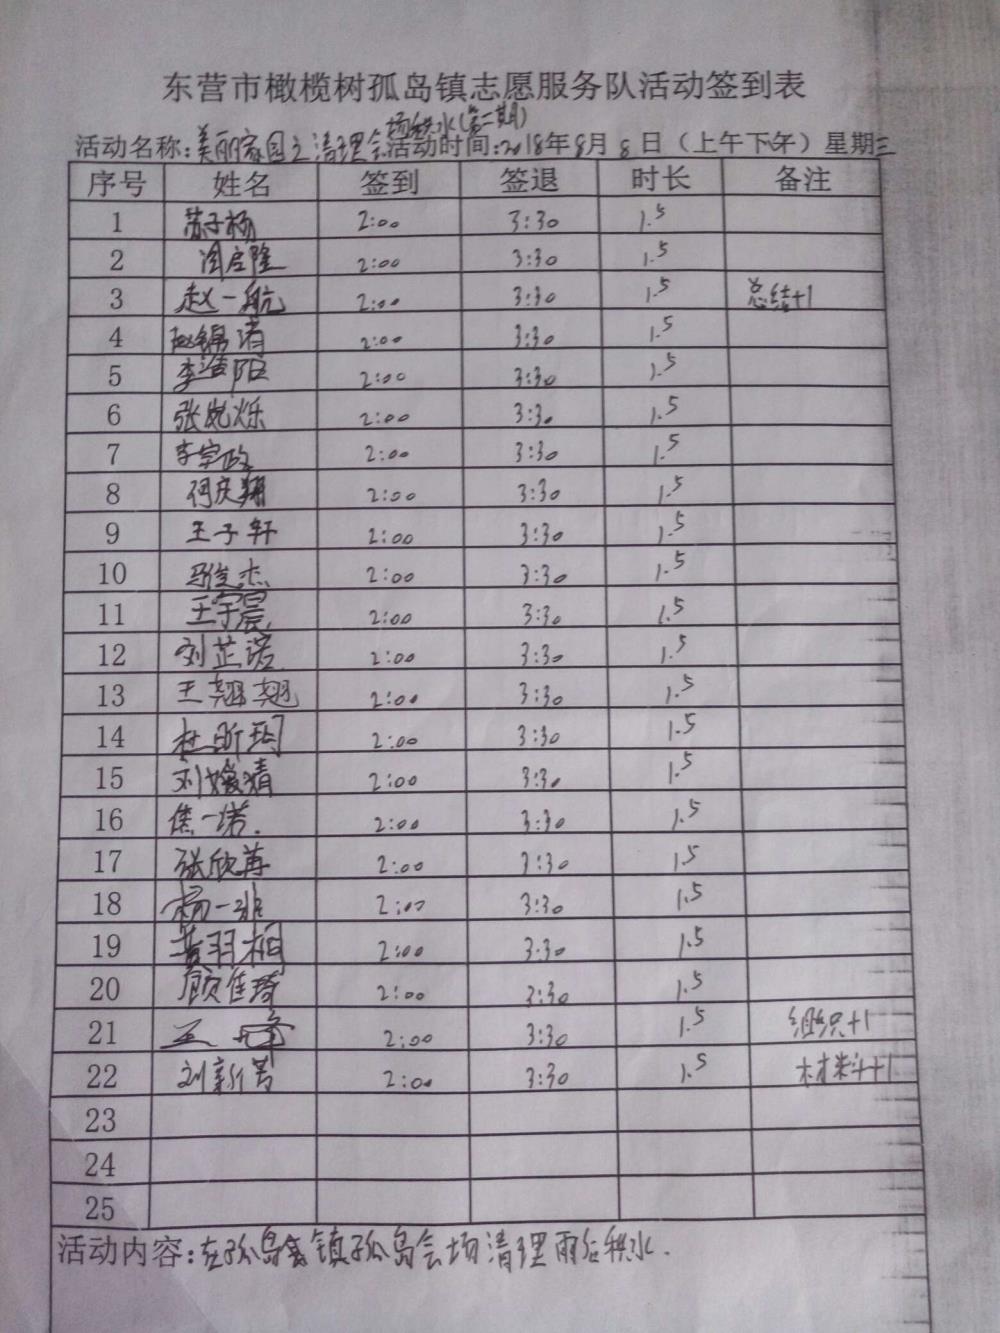 东营市橄榄树孤岛镇志愿服务队活动签到表
场积水(第二期)
活动名称:美丽家园之清理会活动时间:2018年8月8日（上午下午）星期三
序号 姓名 签到 签退 时长 备注
1 苏子杨 2:00 3:30 1.5
2 闫启隆 2:00 3:30 1.5
3 赵一航 2:00 3:30 1.5 总结+1
4 赵锦诸 2:00 3:30 1.5
5 李浩阳 2:00 3:30 1.5
6 张岚烁 2:00 3:30 1.5
7 李宗政 2:00 3:30 1.5
8 何庆翔 2:00 3:30 1.5
9 王子轩 2:00 3:30 1.5
10 杰 2:00 3:30 1.5
11 王宇晨 2:00 3:30 1.5
12 刘芷诺 2:00 3:30 1.5
13 王翘翘 2:00 3:30 1.5
14 杜昕玥 2:00 3:30 1.5
15 刘婧 2:00 3:30 1.5
16 焦一诺. 2:00 3:30 1.5
17 张欣苒 2:00 3:30 1.5
18 杨一 2:00 3:30 1.5
19 黄羽相 2:00 3:30 1.5
20 顾佳琦 2:00 3:30 1.5
21 王 2:00 3:30 1.5 组织+1
22 刘新菁 2:00 3:30 1.5 材料+1
23
24
25
活动内容:在孤岛镇孤岛会场清理雨后积水.